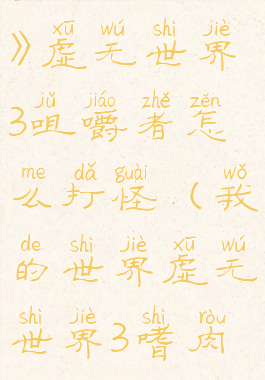 xū wú shì jiè
》虚无世界
jǔ jiáo zhě zěn
3咀嚼者怎
me dǎ guài wǒ
么打怪（我
de shì jiè xū wú
的世界虚无
shì jiè shì ròu
世界3嗜肉